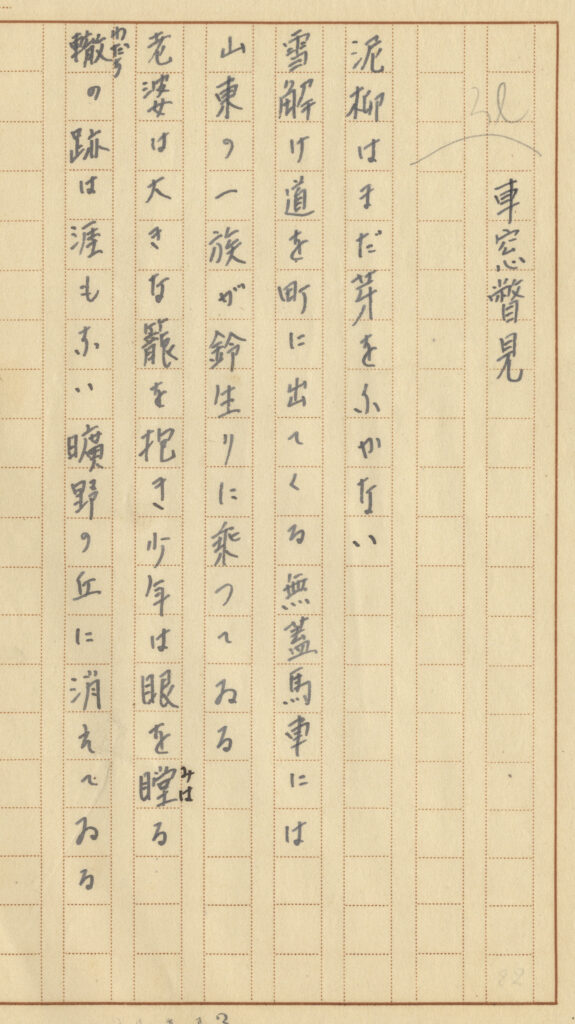 車窓瞥見
泥柳はまだ芽をふかない
雪解け道を町に出てくる無蓋馬車には
山東の一族が鈴生りに乗つてゐる
老婆は大きな籠を抱き少年は眼を瞠る
みは
轍の跡は涯もない曠野の丘に消えてゐる
わだち
22